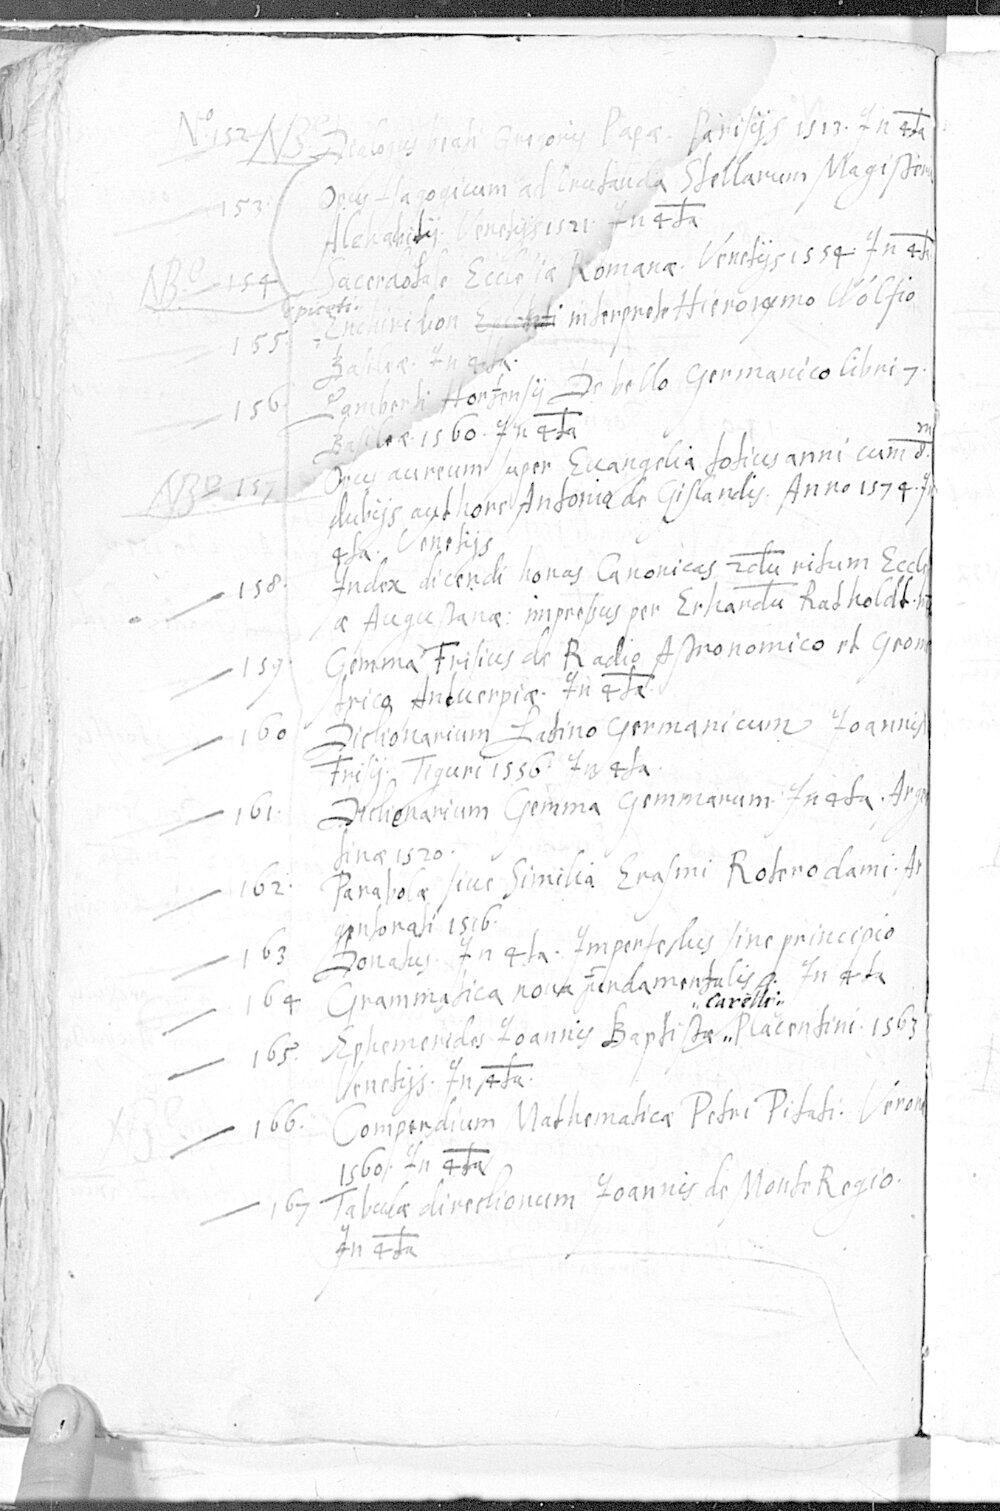 No. 152 NB Dialogus beati Gregorij Papæ. Parisijs 1513. In 4ta
153. Opus Isagogicum ad scrutanda Stellarum Magisteria
Alchabitij. Venetijs 1521. In 4ta
NB 154 Sacerdotale Ecclesiæ Romanæ. Venetijs 1554. In 4ta
Epicteti
155. Enchiridion interprete Hieronymo Wolfio
Basileæ. In 4ta.
156. Lamberti Hortensij De bello Germanico libri 7.
Basileæ 1560. In 4ta
NB 157 Opus aureum super Euangelia totius anni cum
dubijs authore Antonio de Gislandis. Anno 1574. In
4ta. Venetijs
158. Index dicendi horas Canonicas ritum Eccle
æ Augustanæ: impressus per Erhardu Ratholdt.
159. Gemma Frisius de Radio Astronomico et Geome
trico Antuerpiæ. In 4ta.
160 Dictionarium Latino Germanicum Joannis
Frisij. Tiguri 1556. In 4ta.
161. Dictionarium Gemma Gemmarum. In 4ta. Argen
tinæ 1520.
162. Parabolæ siue Similia Erasmi Roterodami. Ar
gentorati 1516.
163 Donatus. In 4ta. Imperfectus sine principio
164 Grammatica noua fundamentalis. In 4ta
„Carelli„
165. Ephemerides Joannis Baptistæ „ Placentini. 1563
Venetijs. In 4ta.
166. Compendium Mathematicæ Petri Pitati. Veron
1560. In 4ta
167 Tabulæ directionum Joannis de Monte Regio.
In 4ta